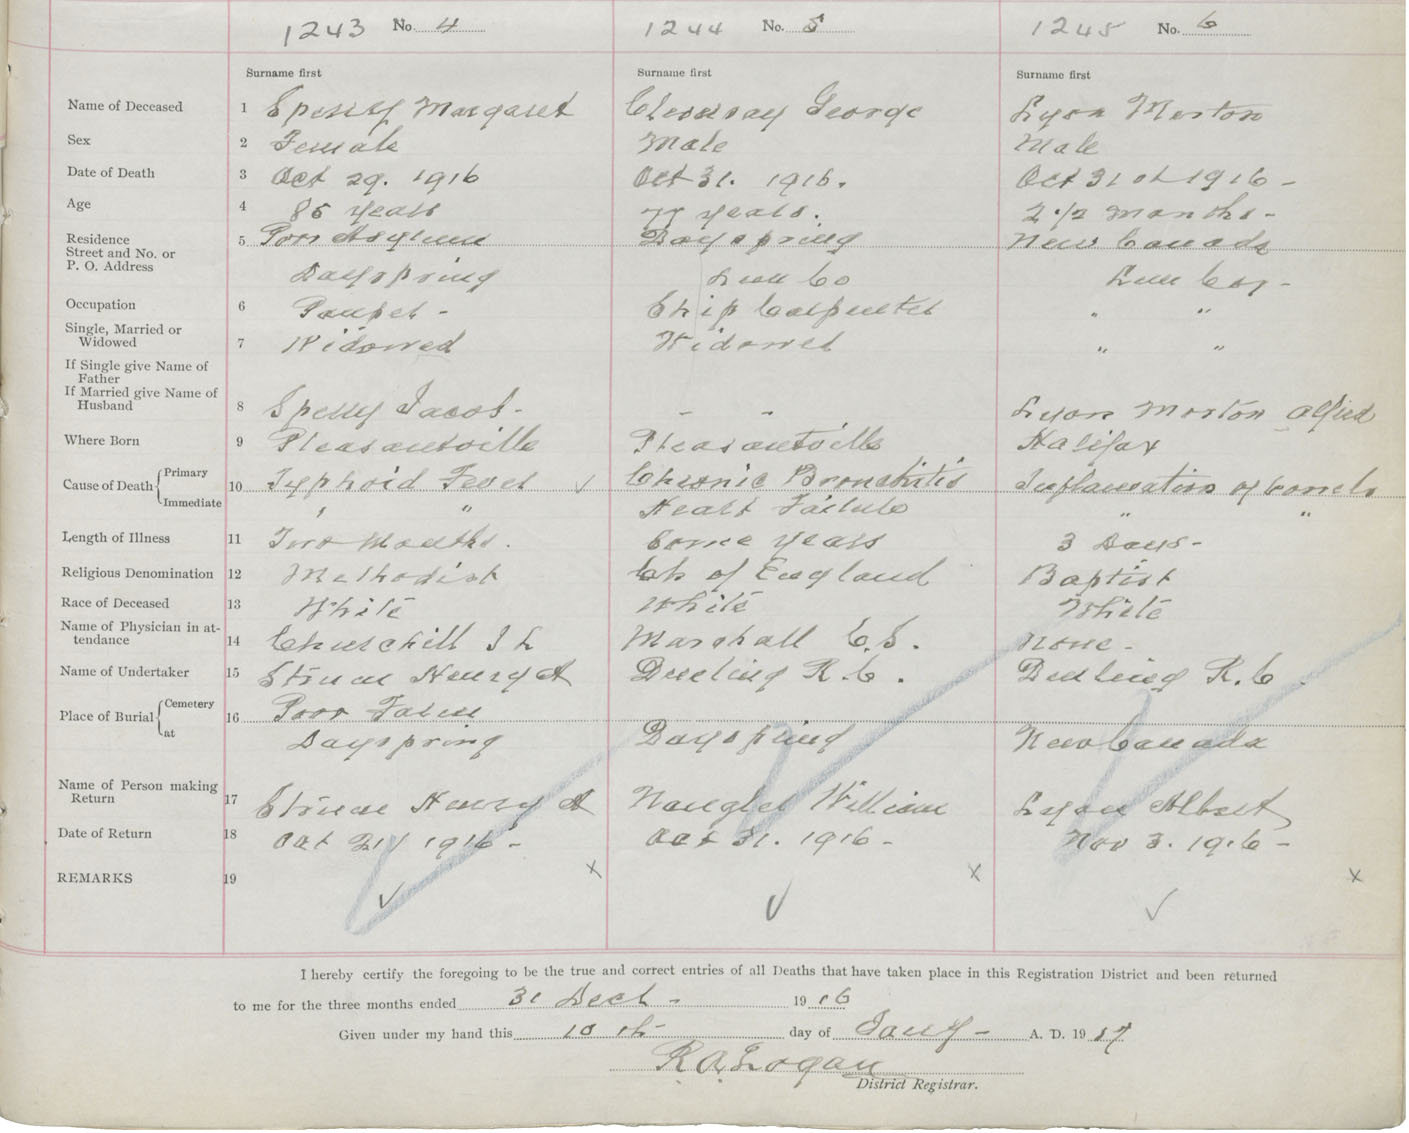 1243 No. 4 1244 No. 5 1245 No. 6
Surname first Surname first Surname first
Name of Deceased 1 Sperry Margaret George Lyon Morton
Sex 2 Female Male Male
Date of Death 3 Oct 29. 1916 Oct 31. 1916. Oct 31st 1916 -
Age 4 85 years 77 years. 2 1/2 months -
Residence 5 Poor Asylum Dayspring New Canada
Street and No. or
P. O. Address Dayspring Lun Co Lun Coy -
Occupation 6 Pauper - Ship Carpenter " "
Single, Married or
Widowed 7 Widowed Widower " "
If Single give Name of
Father
If Married give Name of
Husband 8 Sperry Jacob - - - Lyon Morton Alfred
Where Born 9 Pleasantville Pleasantville Halifax
Cause of Death { Primary 10 Typhoid Fever ✓ Chronic Bronchitis Inflamation of bowels
Immediate ' " Heart Failure " "
Length of Illness 11 Two Months. Some years 3 Days -
Religious Denomination 12 Methodist Ch of England Baptist
Race of Deceased 13 White White White
Name of Physician in at-
tendance 14 Churchill J L Marshall C. S. None -
Name of Undertaker 15 Henry A R. C. R. C.
Place of Burial { Cemetery 16 Poor Farm
at Dayspring Dayspring New Canada
Name of Person making
Return 17 Henry A Naugler William Lyon Albert
Date of Return 18 Oct 31 1916 - Oct 31. 1916 - Nov 3. 1916 -
REMARKS 19 ✓ x ✓ x ✓ x
I hereby certify the foregoing to be the true and correct entries of all Deaths that have taken place in this Registration District and been returned
to me for the three months ended 31 Dect - 1916
Given under my hand this 10 th day of Jany - A. D. 1917
R. A. Logan
District Registrar.